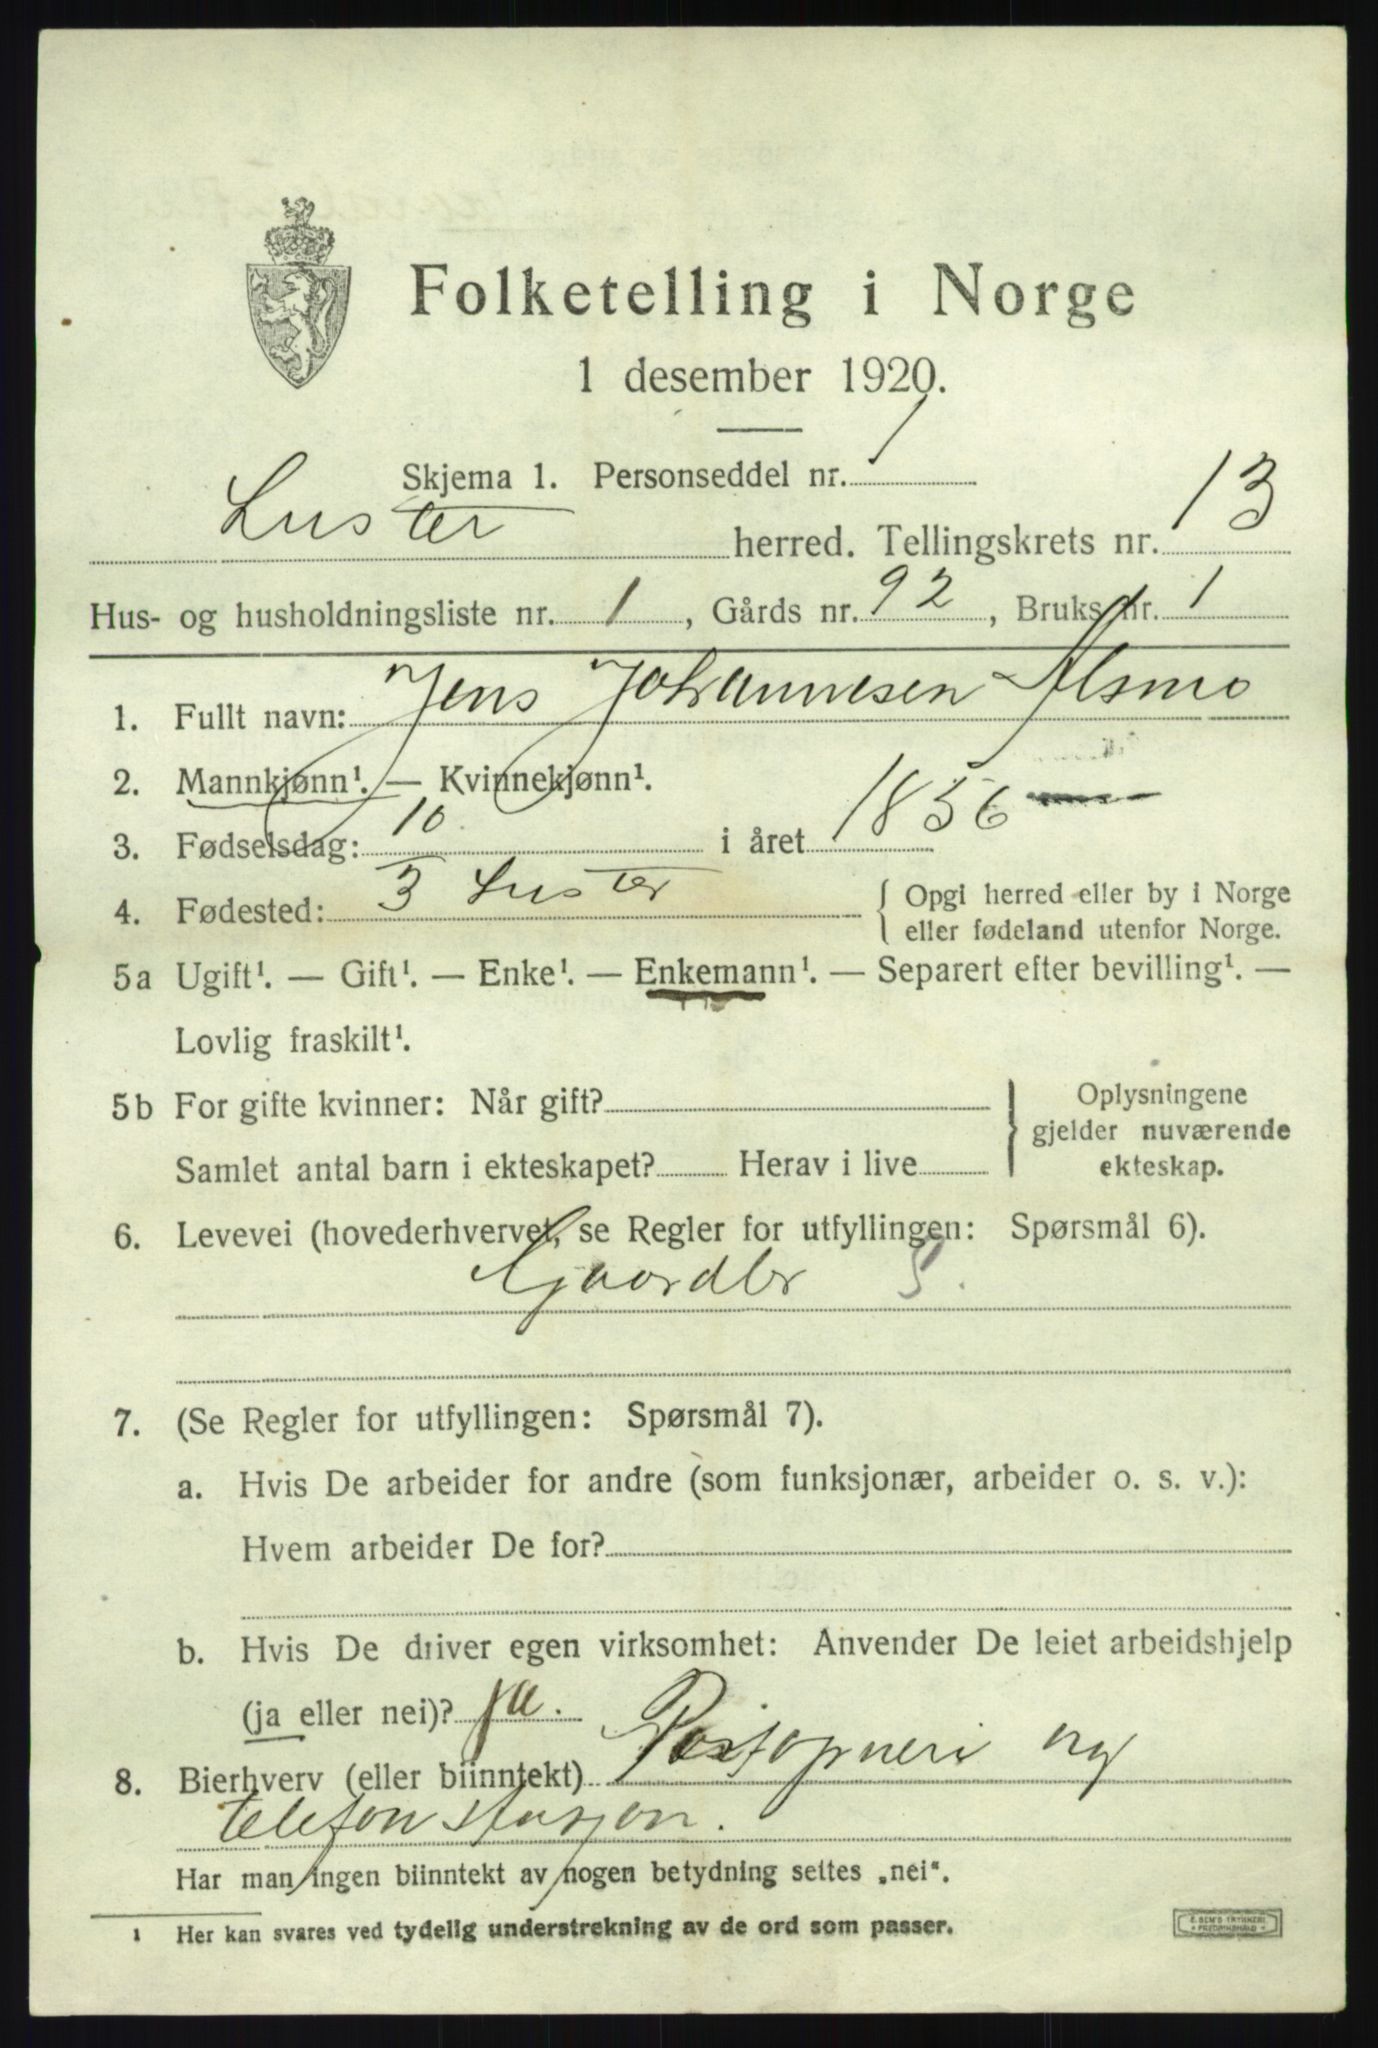 Folketelling i Norge
1 desember 1920.
Skjema 1. Personseddel nr. 1
Luster herred. Tellingskrets nr. 13
Hus- og husholdningsliste nr. 1, Gårds nr. 92, Bruks nr. 1
1. Fullt navn: Jens Johannesen Alsmo
2. Mannkjønn¹. — Kvinnekjønn¹.
3. Fødselsdag: 10/3 i året 1856
4. Fødested: Luster { Opgi herred eller by i Norge
eller fødeland utenfor Norge.
5a Ugift¹. — Gift¹. — Enke¹. — Enkemann¹. — Separert efter bevilling¹. —
Lovlig fraskilt¹.
5b For gifte kvinner: Når gift?
Samlet antal barn i ekteskapet? Herav i live
} Oplysningene
gjelder nuværende
ekteskap.
6. Levevei (hovederhvervet, se Regler for utfyllingen: Spørsmål 6).
Gaardbr S.
7. (Se Regler for utfyllingen: Spørsmål 7).
a. Hvis De arbeider for andre (som funksjonær, arbeider o. s. v.):
Hvem arbeider De for?
b. Hvis De driver egen virksomhet: Anvender De leiet arbeidshjelp
(ja eller nei)? ja.
8. Bierhverv (eller biinntekt) Postopneri og
telefonstasjon.
Har man ingen biinntekt av nogen betydning settes „nei“.
¹ Her kan svares ved tydelig understrekning av de ord som passer.
E. SEM'S TRYKKERI
FREDRIKSHALD